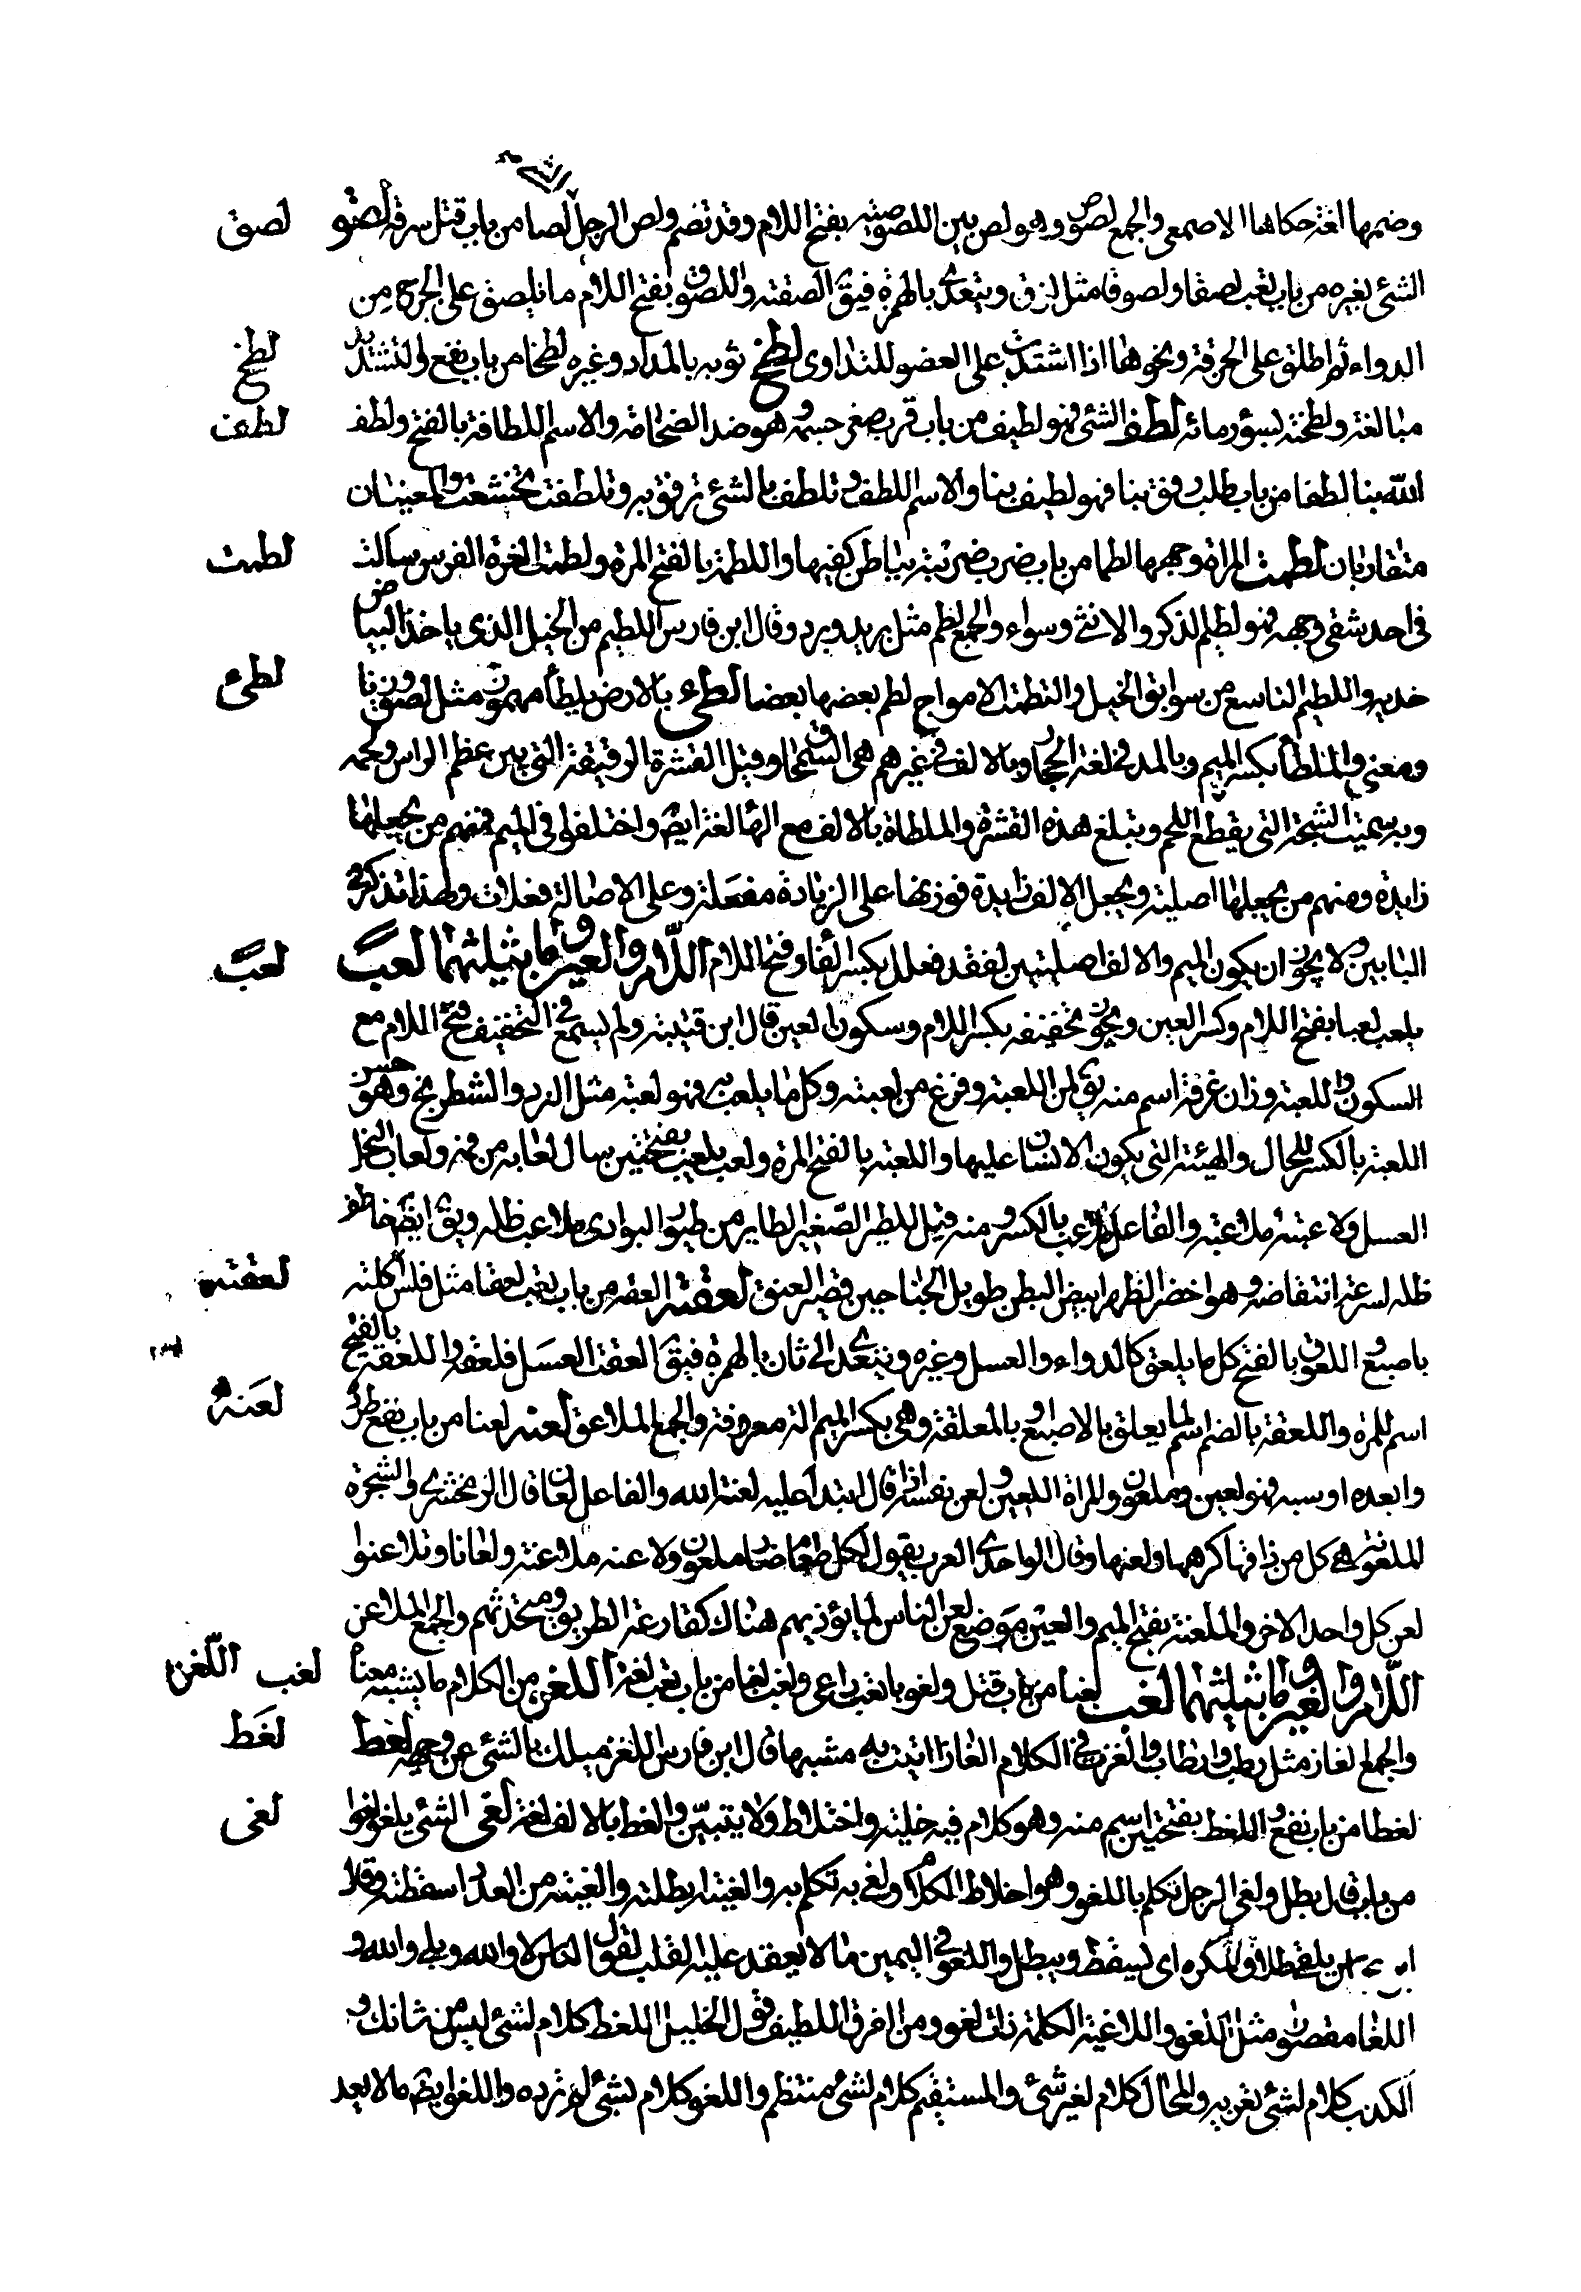 وضمها لغة حكاها الاصمعى والجمع لصوص وهو لص بين اللصوصية بفتح اللام وقد تضم ولص الرجل لصا من باب قتل سرقه لصق
لصق
الشئ بغيره من باب تعب لصقا ولصوقا مثل لزق ويتعدى بالهمزة فيق الصقته واللصوق بفتح اللام ما يلصق على الجرح من
الدواء ثم اطلق على الخرقة ونحوها اذا اشتدت على العضو للتداوى لطخ ثوبه بالمداد وغيره لطخا من باب نفع والتشديد
لطخ
مبالغة ولطخته بسوء رماه به لطف الشئ فهو لطيف من باب قرب صغر جسمه وهو ضد الضخامة والاسم اللطافة بالفتح ولطف
لطف
الله بنا لطفا من باب طلب رفق بنا فهو لطيف بنا والاسم اللطف وتلطف بالشئ ترفق به وتلطفت تخشعت والمعنيان
متقاربان لطمت المراة وجهها لطما من باب ضرب ضربته بباطن كفها واللطمة بالفتح المرة ولطمت الغرة الفرس سالت
لطمت
فى احد شقى وجهه فهو لطيم الذكر والانثى سواء والجمع لطم مثل بريد وبرد وقال ابن فارس اللطيم من الخيل الذى ياخذ البياض
خديه واللطيم التاسع من سوابق الخيل والتطمت الامواج لطم بعضها بعضا لطئ بالارض يلطأ مهموز مثل لصق وزنا
لطئ
ومعنى والملطأ بكسر الميم وبالمد فى لغة الحجاز وبالالف فى غيرهم هى السمحاق وقيل القشرة الرقيقة التى بين عظم الراس ولحمه
وبه سميت الشجة التى يقطع اللحم وتبلغ هذه القشرة والملطاة بالالف مع الهاء لغة ايض واختلفوا فى الميم فمنهم من يجعلها
زايدة ومنهم من يجعلها اصلية ويجعل الالف زايدة فوزنها على الزيادة مفعلة وعلى الاصالة فعلات ولهذا تذكر فى
البابين ولا يجوز ان يكون الميم والالف اصليتين لفقد فعلل بكسر الفاء وفتح اللام اللام والعين وما يثلثهما لعب
لعب
يلعب لعبا بفتح اللام وكسر العين ويجوز تخفيفه بكسر اللام وسكون العين قال ابن قتيبة ولم يسمع فى التخفيف فتح اللام مع
السكون واللعبة وزان غرفة اسم منه يق لمن اللعبة وفرغ من لعبته وكل ما يلعب به فهو لعبة مثل النرد والشطرنج وهو حسن
اللعبة بالكسر للحال والهيئة التى يكون الانسان عليها واللعبة بالفتح المرة ولعب يلعب بفتحتين سال لعابه من فمه ولعاب النحل
العسل ولاعبته ملاعبة والفاعل ملاعب بالكسر ومنه قيل للطير الصغير الطاير من طيور البوادى ملاعب ظله ويق ايض خاطف
ظله لسرعة انتقاضه وهو اخضر الظهر ابيض البطن طويل الجناحين قصير العنق لعقته العقه من باب تعب لعقا مثل فلس اكلته
لعقته
باصبع واللعوق بالفتح كل ما يلعق كالدواء والعسل وغيره ويتعدى الى ثان بالهمزة فيق العقته العسل فلعقه واللعقة بالفتح
اسم للمرة واللعقة بالضم اسم لما يعلق بالاصبع او بالمعلقة وهى بكسر الميم الة معروفة والجمع الملاعق لعنه لعنا من باب نفع طرده
لعنه
وابعده او سبه فهو لعين وملعون والمراة اللعين ولعن نفسه اذا قال ابتدا عليه لعنة الله والفاعل لعان قال الزمخشرى والشجرة
الملعونة هى كل من ذاقها كرهها ولعنها وقال الواحدى العرب يقول لكل طعام ضار ملعون ولاعنه ملاعنة ولعانا وتلاعنوا
لعن كل واحد الاخر والملعنة بفتح الميم والعين موضع لعن الناس لما يؤذيهم هناك كقارعة الطريق ومتحدثهم والجمع الملاعن
اللام والغين وما يثلثهما لغب لغبا من باب قتل ولغوبا تعب واعى ولغب لغبا من باب تعب لغة اللغز من الكلام ما يشبه معناه
لغب اللغز
والجمع الغاز مثل رطب وارطاب والغزت فى الكلام الغازا اتيت به مشبها قال ابن فارس اللغز ميلك بالشئ عن وجهه لغط
لغط
لغطا من باب نفع واللغط بفتحتين اسم منه وهو كلام فيه جلبة واختلاط ولا يتبين والغط بالالف لغة لغى الشئ يلغو لغوا
لغى
من باب قال بطل ولغى الرجل تكلم باللغو وهو اخلاط الكلام ولغى به تكلم به والغيته ابطلته والغيته من العدد اسقطته وقال
ابن عباس يلغى طلاق المكره اى يسقط ويبطل واللغو فى اليمين ما لا يعقد عليه القلب لقول الناس لا والله وبلى والله و
اللغا مقصور مثل اللغو واللاغية الكلمة ذات لغو ومن الفرق اللطيف قول الخليل اللغط كلام لشئ ليس من شانك و
الكذب كلام لشئ تغر به والمحال كلام لغير شئ والمستقيم كلام لشئ منتظم واللغو كلام لشئ لم ترده واللغو ايض ما لا يعد